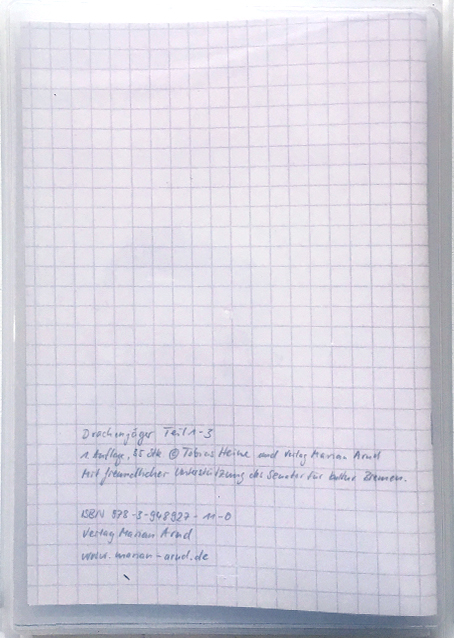 Drachenjäger Teil 1-3
1 Auflage, 35 Stk © Tobias Heine und Verlag Marian Arnd
Mit freundlicher Unterstützung des Senator für Kultur Bremen.
ISBN 978-3-948927-11-0
Verlag Marian Arnd
www.marian-arnd.de